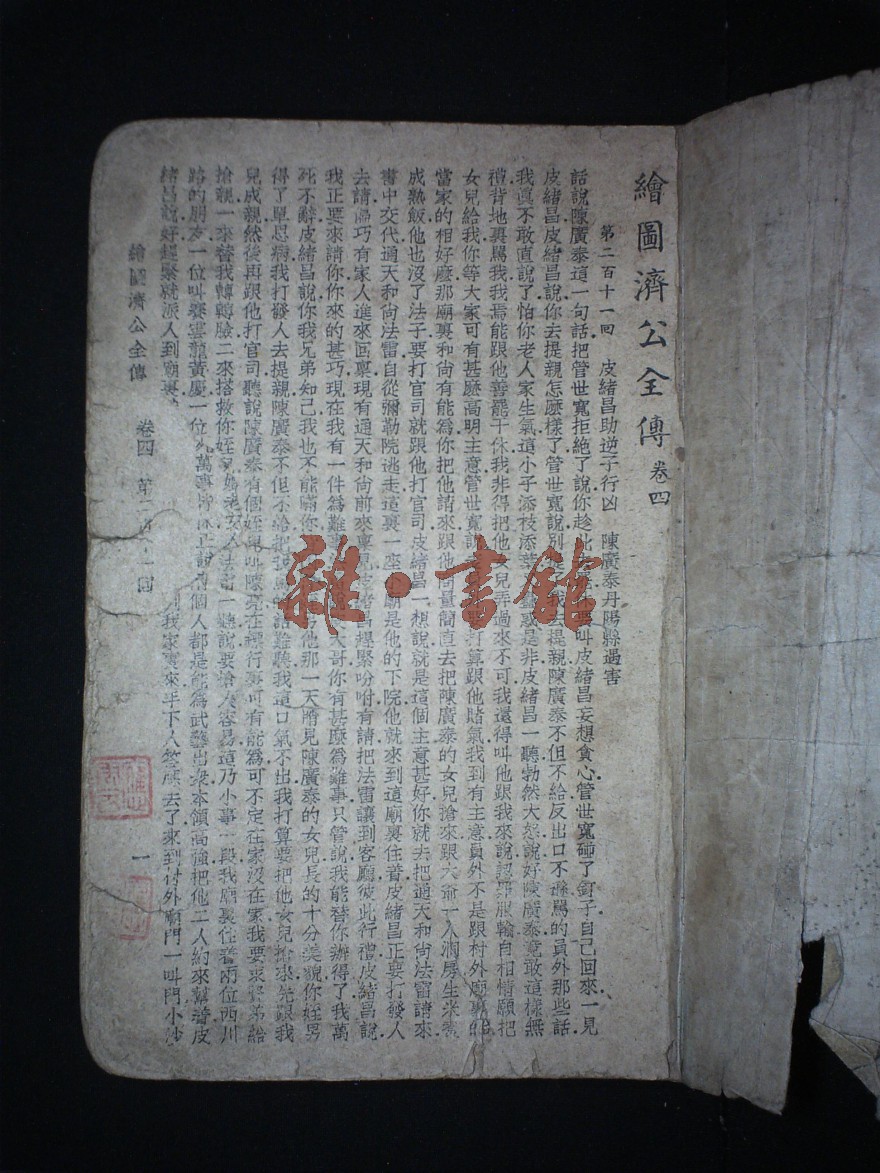 繪圖濟公全傳 卷四
第二百十一回 皮緒昌助逆子行凶 陳廣泰丹陽縣遇害
話說陳廣泰這一句話把管世寬拒絕了說你趁此 叫皮緒昌妄想貪心管世寬碰了釘子自己回來一見
皮緒昌皮緒昌說你去提親怎麼樣了管世寬說別提 我去提親陳廣泰不但不給反出口不遜罵的員外那些話
我眞不敢直說了怕你老人家生氣這小子添枝添葉 蠱惑是非皮緒昌一聽勃然大怒說好陳廣泰竟敢這樣無
禮背地裏罵我我焉能跟他善罷干休我非得把他 兒弄過來不可我還得叫他跟我來說認罪服輸自相情願把
女兒給我你等大家可有甚麼高明主意管世寬說 打算跟他賭氣我到有主意員外不是跟村外廟裏的
當家的相好麼那廟裏和尙有能爲你把他請來跟他 量簡直去把陳廣泰的女兒搶來跟大爺一入洞房生米煮
成熟飯他也沒了法子要打官司就跟他打官司皮緒昌一想說就是這個主意甚好你就去把通天和尙法雷請來
書中交代通天和尙法雷自從彌勒院逃走這裏一座 廟是他的下院他就來到這廟裏住着皮緒昌正要打發人
去請 巧有家人進來回稟現有通天和尙前來 皮緒昌趕緊吩咐有請把法雷讓到客廳彼此行禮皮緒昌說
我正要來請你你來的甚巧現在我有一件爲難 大哥你有甚麼爲難事只管說我能替你辦得了我萬
死不辭皮緒昌說你我兄弟知己我也不能瞞你 他那一天瞧見陳廣泰的女兒長的十分美貌你姪男
得了單思病我打發人去提親陳廣泰不但不給把我罵 難聽我這口氣不出我打算要把他女兒搶來先跟我
兒成親然後再跟他打官司聽說陳廣泰有個姪兒叫陳亮在鏢行 可有能爲可不定在家沒在家我要求賢弟給
搶親一來替我轉轉臉二來搭救你姪兒 法雷一聽說要搶人容易這乃小事一段我廟裏住着兩位西川
路的朋友一位叫 雲龍黃慶一位 個人都是能爲武藝出衆本領高強把他二人約來幫着皮
緒昌說好趕緊就派人到廟裏 到我家裏來手下人答應去了來到村外廟門一叫門小沙
繪圖濟公全傳 卷四 一
雜·書館